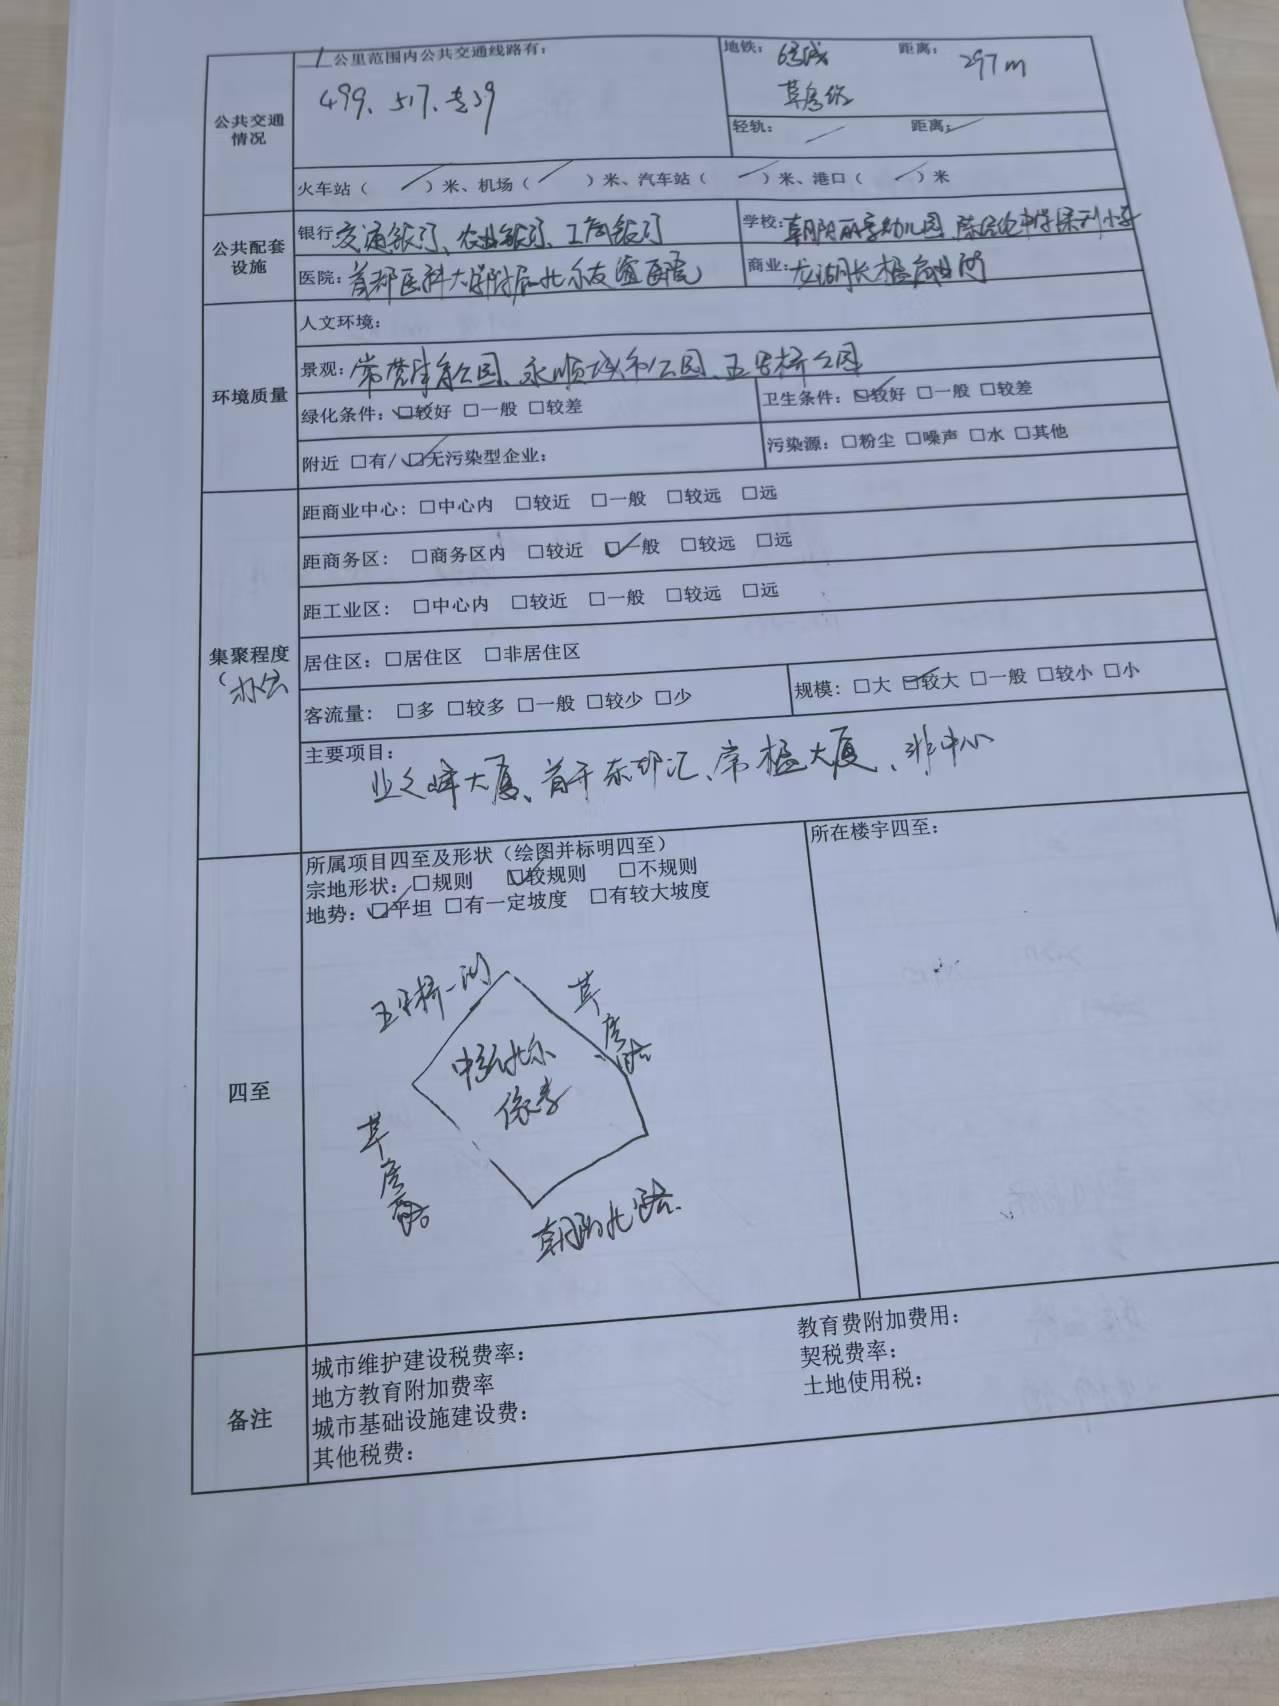 1公里范围内公共交通线路有：
499、517、专39
地铁： 6号线 距离： 297m
草房站
公共交通情况
轻轨： / 距离： /
火车站（ / ）米、机场（ / ）米、汽车站（ / ）米、港口（ / ）米
公共配套设施
银行 交通银行、农业银行、工商银行
学校： 朝阳 幼儿园、陈经纶中学保利小学
医院： 首都医科大学附属北京友谊医院
商业： 龙湖长楹天街
环境质量
人文环境：
景观： 常营体育公园、永顺城市公园、五里桥公园
绿化条件： ☑较好 □一般 □较差
卫生条件： ☑较好 □一般 □较差
附近 □有/ ☑无污染型企业：
污染源： □粉尘 □噪声 □水 □其他
集聚程度
（办公
距商业中心： □中心内 □较近 □一般 □较远 □远
距商务区： □商务区内 □较近 ☑一般 □较远 □远
距工业区： □中心内 □较近 □一般 □较远 □远
居住区： □居住区 □非居住区
客流量： □多 □较多 □一般 □较少 □少
规模： □大 ☑较大 □一般 □较小 □小
主要项目：
业之峰大厦、首开东都汇、常楹大厦、非中心
四至
所属项目四至及形状（绘图并标明四至）
宗地形状： □规则 ☑较规则 □不规则
地势： ☑平坦 □有一定坡度 □有较大坡度
所在楼宇四至：
五里桥一街
草房 路
中弘北京
像素
草房西路
朝阳北路
备注
城市维护建设税费率：
教育费附加费用：
地方教育附加费率
契税费率：
城市基础设施建设费：
土地使用税：
其他税费：